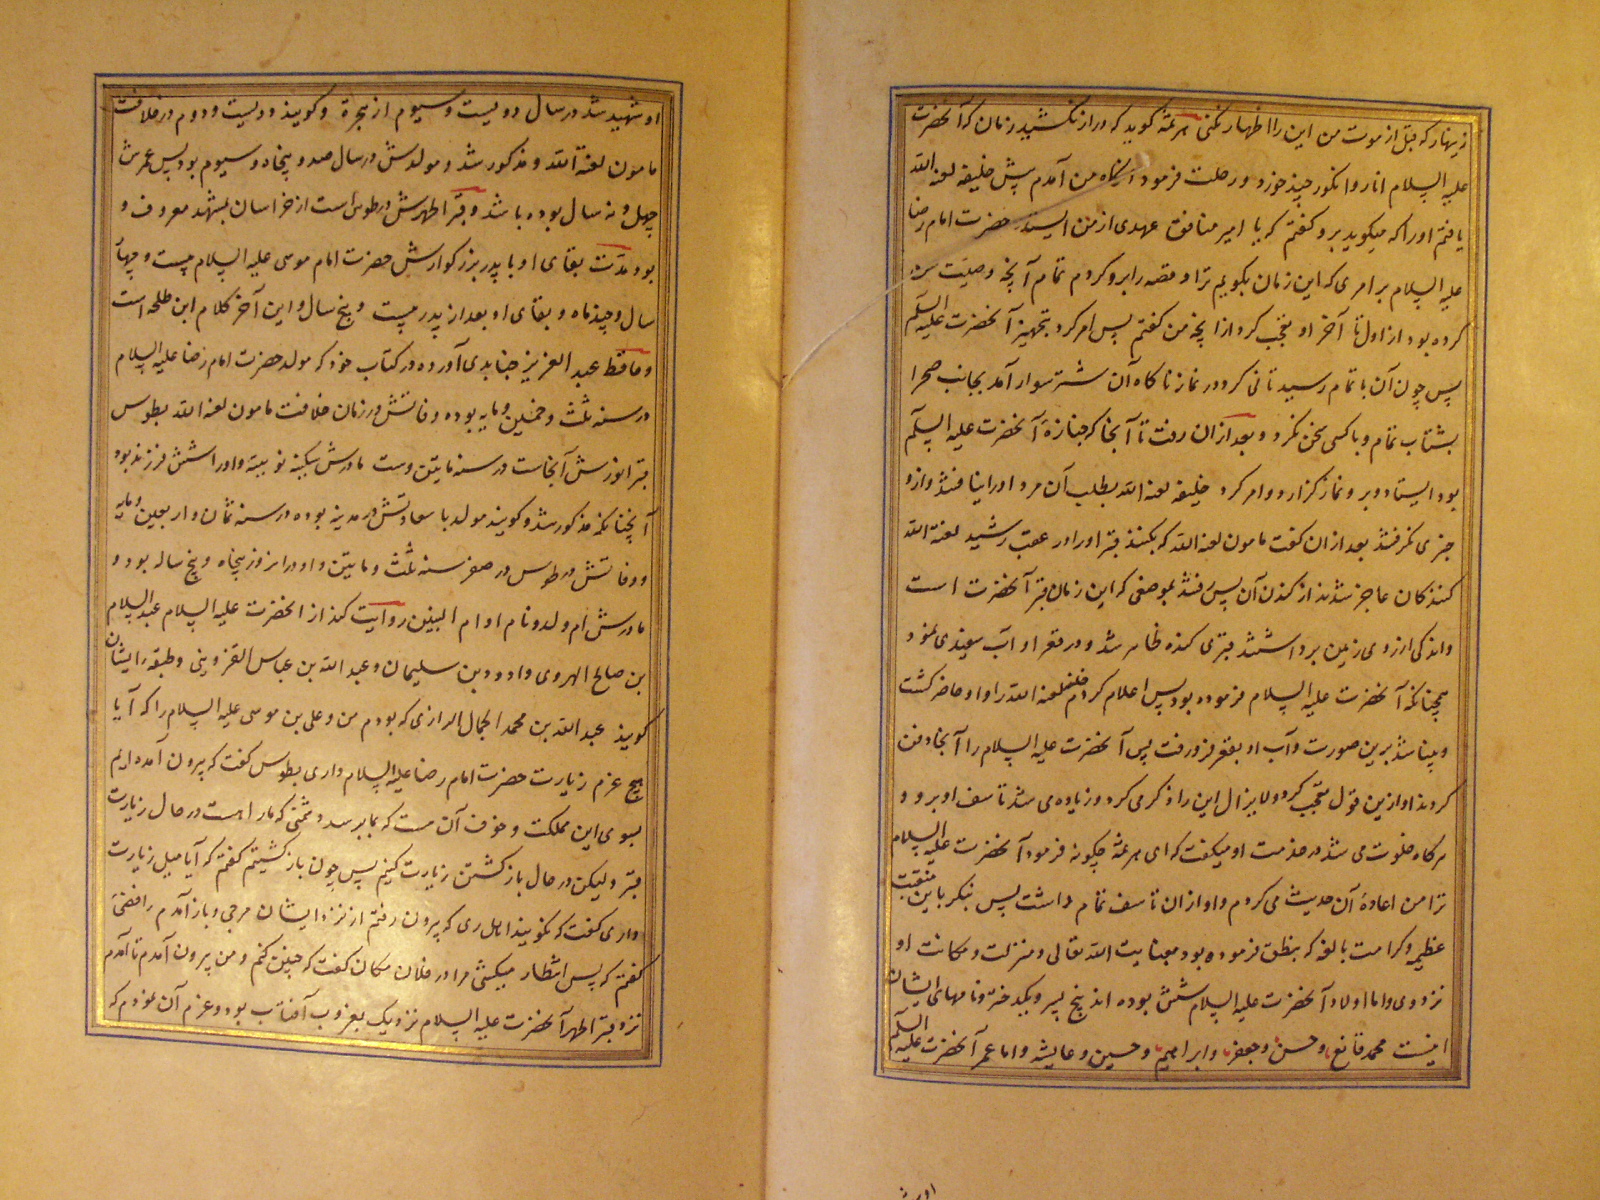 زینهار که قبل از موت من این را اظهار نکنی هرثمه گوید که دراز نکشید زمان که آنحضرت
علیه السلام انار و انگور چند خورد و رحلت فرمود آنگاه من آمدم پیش خلیفه لعنه الله
یافتم او را که میگوید برو گفتم که یا امیر عهدی از من حضرت امام رضا
علیه السلام بر امری که این زمان بگویم ترا و قصه را برو کردم تمام آنچه وصیت
کرده بود از اول تا آخر او تعجب کرد از آنچه من گفتم پس امر کرد بتجهیز آنحضرت علیه السلم
پس چون آن باتمام رسید تانی کرد در نماز ناگاه آن شتر سوار آمد بجانب صحرا
بشتاب تمام و با کسی سخن نکرد و بعد از آن رفت تا آنجا که جنازه آنحضرت علیه السلم
بود ایستاد و برو نماز گزارد و امر کرد خلیفه لعنه الله بطلب آن مرد او را نیافتند و ازو
خبری نگرفتند بعد از آن گفت مامون لعنه الله که بکنند قبر او را در عقب رشید لعنة الله
کنندگان عاجز شدند از کندن آن پس رفتند بموضعی که این زمان قبر آنحضرت است
و اندکی از روی زمین برداشتند قبری کنده ظاهر شد و در قعر او آب سفیدی نمود
همچنانکه آنحضرت علیه السلام فرموده بود پس اعلام کردم خلیفه لعنه الله را و او حاضر گشت
و پیدا شد برین صورت و آب او بقعر فرو رفت پس آنحضرت علیه السلام را آنجا دفن
کردند او ازین قول تعجب کرد و لایزال این را ذکر می کرد و زیاده می شد تاسف او برو و
هرگاه خلوت می شد در خدمت او میگفت که ای هرثمه چگونه فرمود آنحضرت علیه السلام
ترا من اعاده آن حدیث می کردم و او از آن تاسف تمام داشت پس بنگر باین منقبت
عظیمه و کرامت بالغه که نطق فرموده بود بعنایت الله تعالی و منزلت و مکانت او
نزد وی و اما اولاد آنحضرت علیه السلام شش بوده اند پنج پسر و یک دختر و نامهای ایشان
اینست محمد قانع و حسن و جعفر و ابراهیم و حسین و عایشه و اما عمر آنحضرت علیه السلم
او شهید شد در سال دویست و سیوم از هجرة و گویند دویست و دوم در خلافت
مامون لعنة الله و مذکور شد و مولدش در سال صد و پنجاه و سیوم بود پس عمرش
چهل و نه سال بوده باشد و قبر اطهرش در طوس است از خراسان بمشهد معروف و
بود مدت بقای او با پدر بزرگوارش حضرت امام موسی علیه السلام بیست و چهار
سال و چند ماه و بقای او بعد از پدر بیست و پنج سال و این آخر کلام ابن طلحه است
و حافظ عبد العزیز جنابدی آورده در کتاب خود که مولد حضرت امام رضا علیه السلام
در سنه ثلث و خمسین و مایه بوده و فاتش در زمان خلافت مامون لعنه الله بطوس
قبر انورش آنجاست در سنه مایتین و ست مادرش سکینه نوبیه و او را شش فرزند بود
آنچنانکه مذکور شد و گویند مولد با سعادتش در مدینه بوده در سنه ثمان و اربعین و مایه
و وفاتش در طوس در صفر سنه ثلث و مایتین و او در آن روز پنجاه و پنج ساله بود و
مادرش ام ولد و نام او ام البنین روایت کند از آنحضرت علیه السلام عبد السلام
بن صالح الهروی و داوود بن سلیمان و عبد الله بن عباس القزوینی و طبقه ایشان
گویند عبد الله بن محمد الجمال الرازی که بودم من و علی بن موسی علیه السلام را که آیا
هیچ عزم زیارت حضرت امام رضا علیه السلام داری بطوس گفت که بیرون آمده ایم
بسوی این مملکت و خوف آن هست که بما برسد دشمنی که ما را هست در حال زیارت
قبر و لیکن در حال بازگشتن زیارت کنیم پس چون بازگشتیم گفتم که آیا میل زیارت
داری گفت که نگویند اهل ری که بیرون رفتم از نزد ایشان مرجی و باز آمدم رافضی
گفتم که پس انتظار میکشی مرا در فلان مکان گفت که چنین کنم و من بیرون آمدم تا آمدم
نزد قبر اطهر آنحضرت علیه السلام نزدیک بغروب آفتاب بود و عزم آن نمودم که